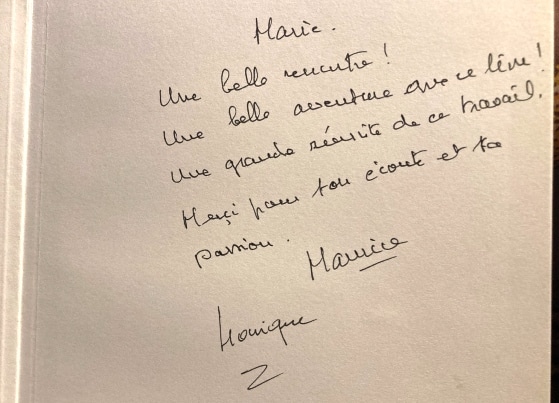 Marie.
Une belle rencontre !
Une belle aventure que ce livre !
Une grande réussite de ce travail.
Merçi pour ton écoute et ta
passion.
Maurice
Monique